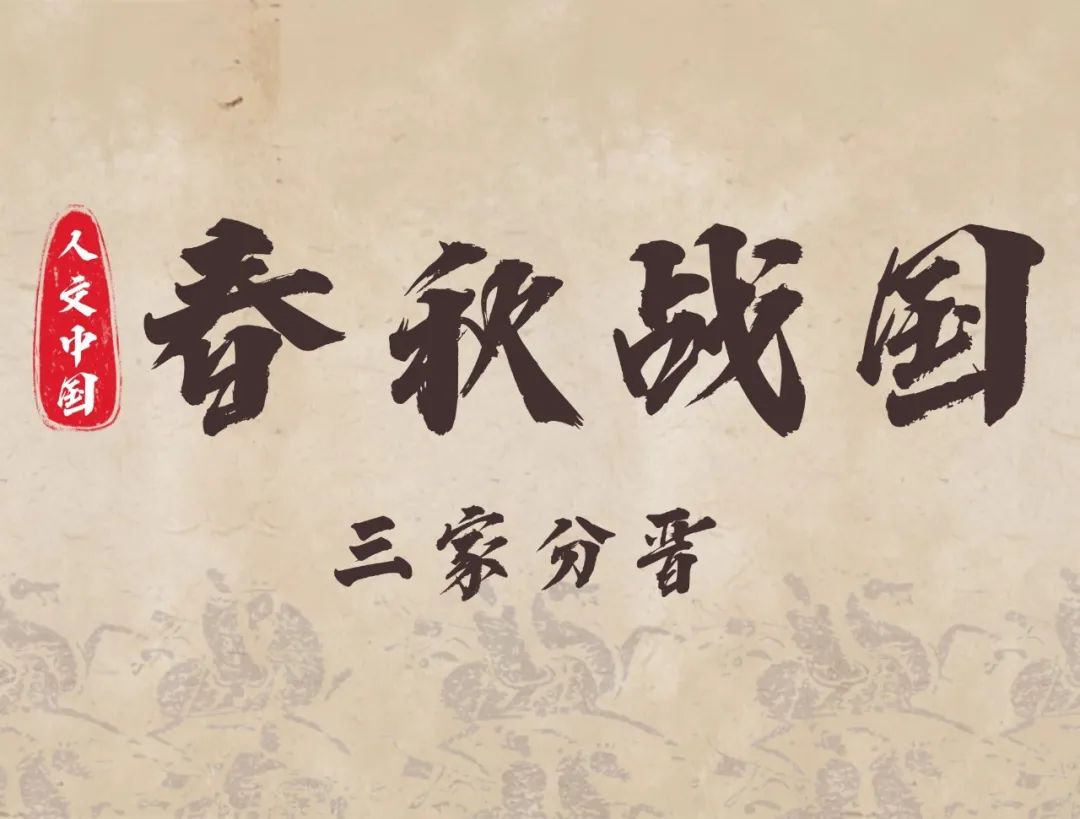 人文中国
春秋战国
三家分晋